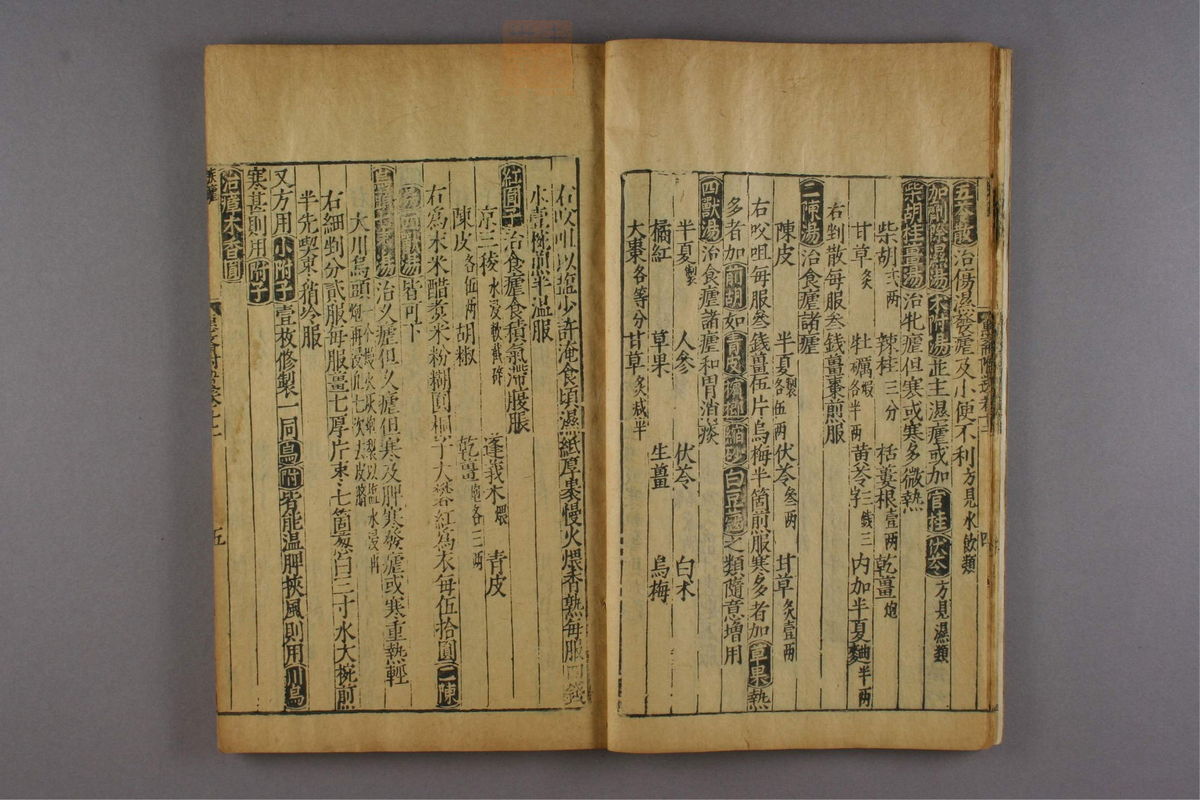 五苓散治傷濕發瘧及小便不利方見水飲類
加劑除濕湯术附湯並主濕瘧或加官桂伏苓方見濕類
柴胡桂薑湯治牝瘧但寒或寒多微熱
柴胡 辣桂三分 栝蔞根壹兩 乾薑炮
甘草炙 牡礪煆各半兩 黃芩三錢三字 內加半夏麯半兩
右剉散每服叁錢薑棗煎服
二陳湯治食瘧諸瘧
陳皮 半夏製各伍兩 伏苓叁兩 甘草炙壹兩
右㕮咀每服叁錢薑伍片烏梅半箇煎服寒多者加草果熱
多者加前胡如青皮檳榔縮砂白豆蔲之類隨意增用
四獸湯治食瘧諸瘧和胃消痰
半夏製 人參 伏苓 白术
橘紅 草果 生薑 烏梅
大棗各等分 甘草炙減半
右㕮咀以塩少許淹食頃濕紙厚裹慢火煨香熟每服四錢
水壹椀煎半溫服
紅圓子治食瘧食積氣滯腹脹
京三稜水浸軟截碎 蓬莪术煨 青皮
陳皮各伍兩 胡椒 乾薑炮各三兩
右為末米醋煑米粉糊圓桐子大礬紅為衣每伍拾圓二陳
湯四獸湯皆可下
治久瘧但久瘧但寒及脾寒發瘧或寒重熱輕
大川烏頭
右細剉分貳服每服薑七厚片棗七箇葱白三寸水大椀煎
半先契棗稍冷服
又方用小附子壹枚修製一同烏附皆能溫脾挾風則用川烏
寒甚則用附子
治瘧木香圓